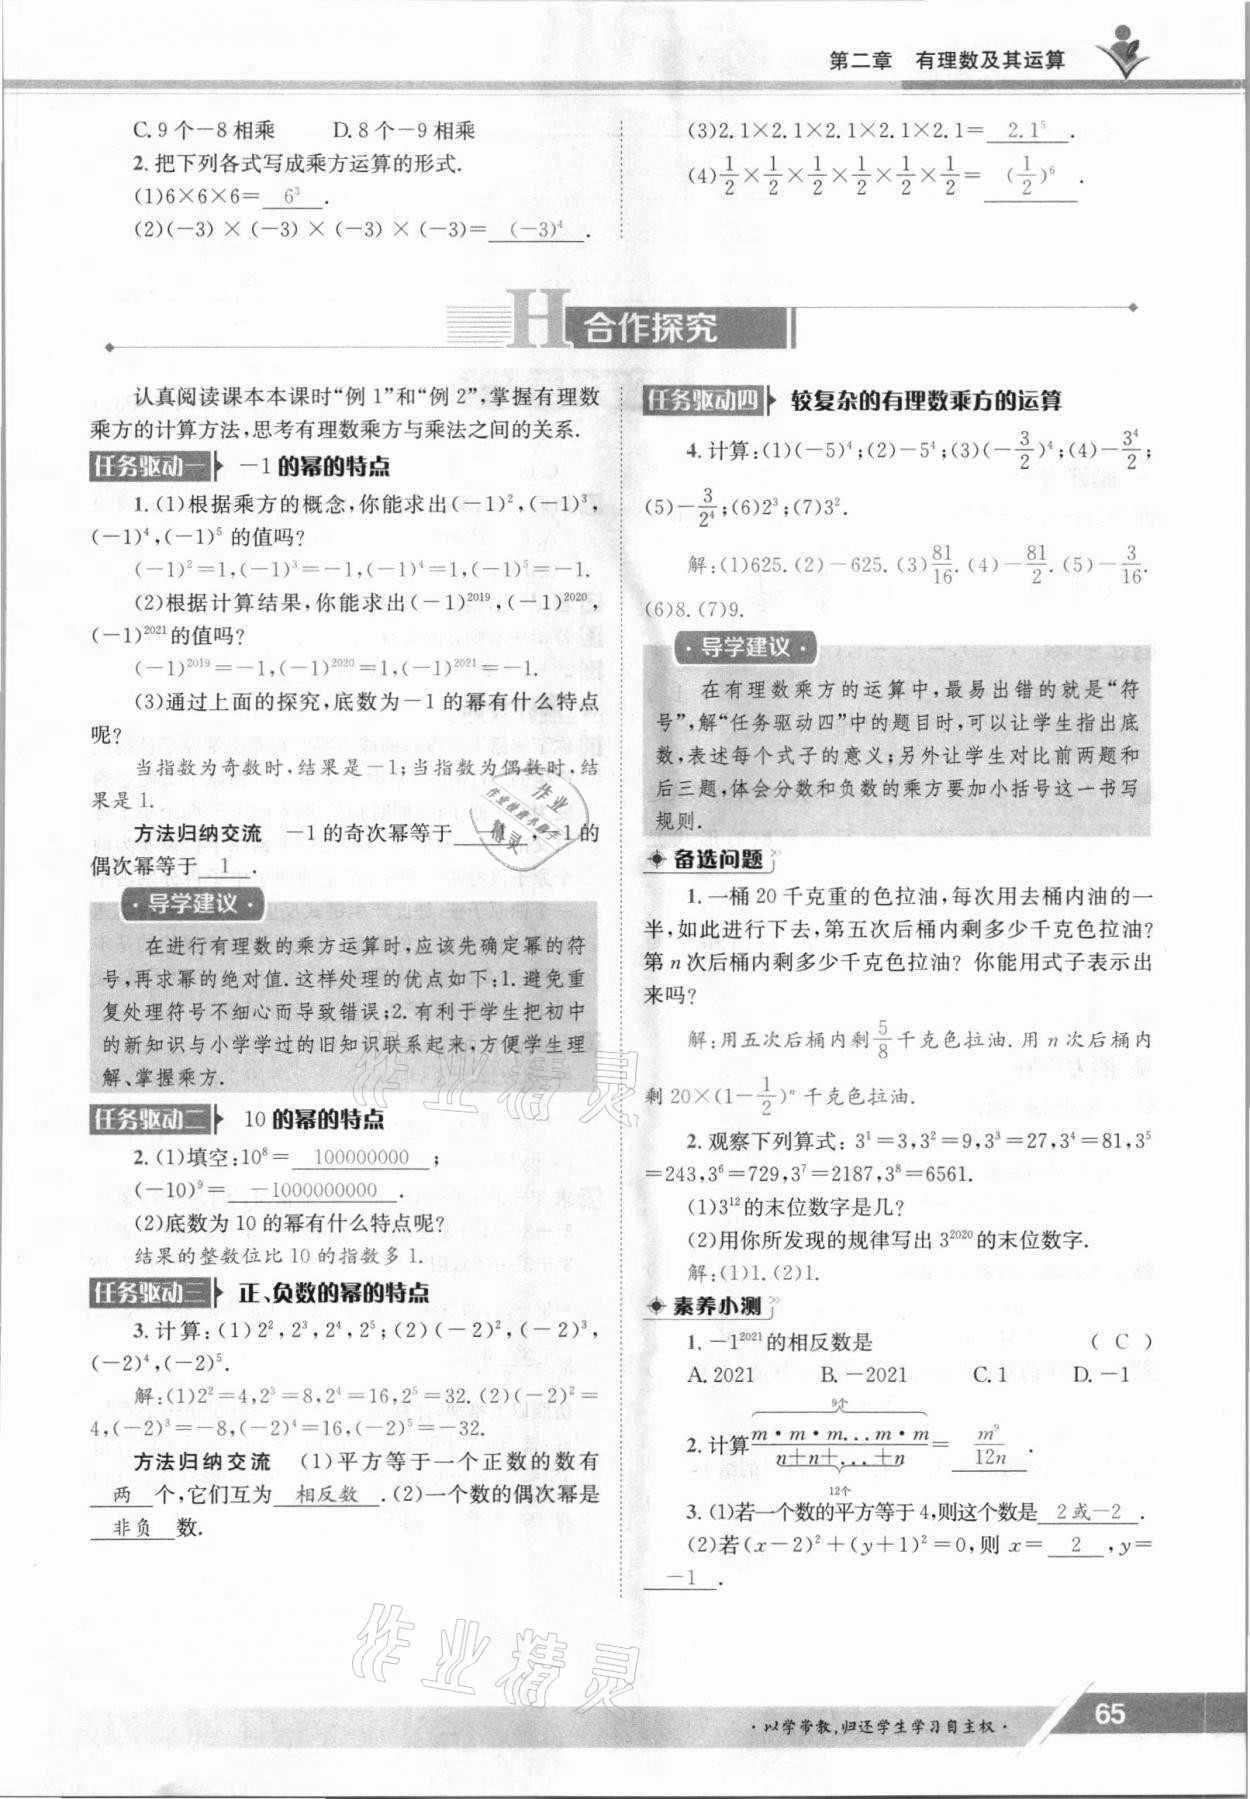 第二章　有理数及其运算
C.9个－8相乘　　D.8个－9相乘
2.把下列各式写成乘方运算的形式.
(1)6×6×6＝ 6³ .
(2)(－3)×(－3)×(－3)×(－3)＝ (－3)⁴ .
(3)2.1×2.1×2.1×2.1×2.1＝ 2.1⁵ .
(4)1/2×1/2×1/2×1/2×1/2×1/2＝ (1/2)⁶ .
H 合作探究
认真阅读课本本课时“例1”和“例2”,掌握有理数
乘方的计算方法,思考有理数乘方与乘法之间的关系.
任务驱动一　－1的幂的特点
1.(1)根据乘方的概念,你能求出(－1)²,(－1)³,
(－1)⁴,(－1)⁵的值吗?
(－1)²＝1,(－1)³＝－1,(－1)⁴＝1,(－1)⁵＝－1.
(2)根据计算结果,你能求出(－1)²⁰¹⁹,(－1)²⁰²⁰,
(－1)²⁰²¹的值吗?
(－1)²⁰¹⁹＝－1,(－1)²⁰²⁰＝1,(－1)²⁰²¹＝－1.
(3)通过上面的探究,底数为－1的幂有什么特点
呢?
当指数为奇数时,结果是－1;当指数为偶数时,结
果是1.
方法归纳交流　－1的奇次幂等于 ,－1的
偶次幂等于 1 .
·导学建议·
在进行有理数的乘方运算时,应该先确定幂的符
号,再求幂的绝对值.这样处理的优点如下:1.避免重
复处理符号不细心而导致错误;2.有利于学生把初中
的新知识与小学学过的旧知识联系起来,方便学生理
解、掌握乘方.
任务驱动二　10的幂的特点
2.(1)填空:10⁸＝ 100000000 ;
(－10)⁹＝ －1000000000 .
(2)底数为10的幂有什么特点呢?
结果的整数位比10的指数多1.
任务驱动三　正、负数的幂的特点
3.计算:(1)2²,2³,2⁴,2⁵;(2)(－2)²,(－2)³,
(－2)⁴,(－2)⁵.
解:(1)2²＝4,2³＝8,2⁴＝16,2⁵＝32.(2)(－2)²＝
4,(－2)³＝－8,(－2)⁴＝16,(－2)⁵＝－32.
方法归纳交流　(1)平方等于一个正数的数有
两 个,它们互为 相反数 .(2)一个数的偶次幂是
非负 数.
任务驱动四　较复杂的有理数乘方的运算
4.计算:(1)(－5)⁴;(2)－5⁴;(3)(－3/2)⁴;(4)－3⁴/2;
(5)－3/2⁴;(6)2³;(7)3².
解:(1)625.(2)－625.(3)81/16.(4)－81/2.(5)－3/16.
(6)8.(7)9.
·导学建议·
在有理数乘方的运算中,最易出错的就是“符
号”,解“任务驱动四”中的题目时,可以让学生指出底
数,表述每个式子的意义;另外让学生对比前两题和
后三题,体会分数和负数的乘方要加小括号这一书写
规则.
备选问题
1.一桶20千克重的色拉油,每次用去桶内油的一
半,如此进行下去,第五次后桶内剩多少千克色拉油?
第n次后桶内剩多少千克色拉油?你能用式子表示出
来吗?
解:用五次后桶内剩5/8千克色拉油.用n次后桶内
剩20×(1－1/2)ⁿ千克色拉油.
2.观察下列算式:3¹＝3,3²＝9,3³＝27,3⁴＝81,3⁵
＝243,3⁶＝729,3⁷＝2187,3⁸＝6561.
(1)3¹²的末位数字是几?
(2)用你所发现的规律写出3²⁰²⁰的末位数字.
解:(1)1.(2)1.
素养小测
1.－1²⁰²¹的相反数是　(C)
A.2021　B.－2021　C.1　D.－1
9个
2.计算 m·m·m...m·m/n+n+...+n＝ m⁹/12n .
12个
3.(1)若一个数的平方等于4,则这个数是 2或－2 .
(2)若(x－2)²＋(y＋1)²＝0,则x＝ 2 ,y＝
－1 .
作业精灵
作业精灵
·以学带教,归还学生学习自主权·
65